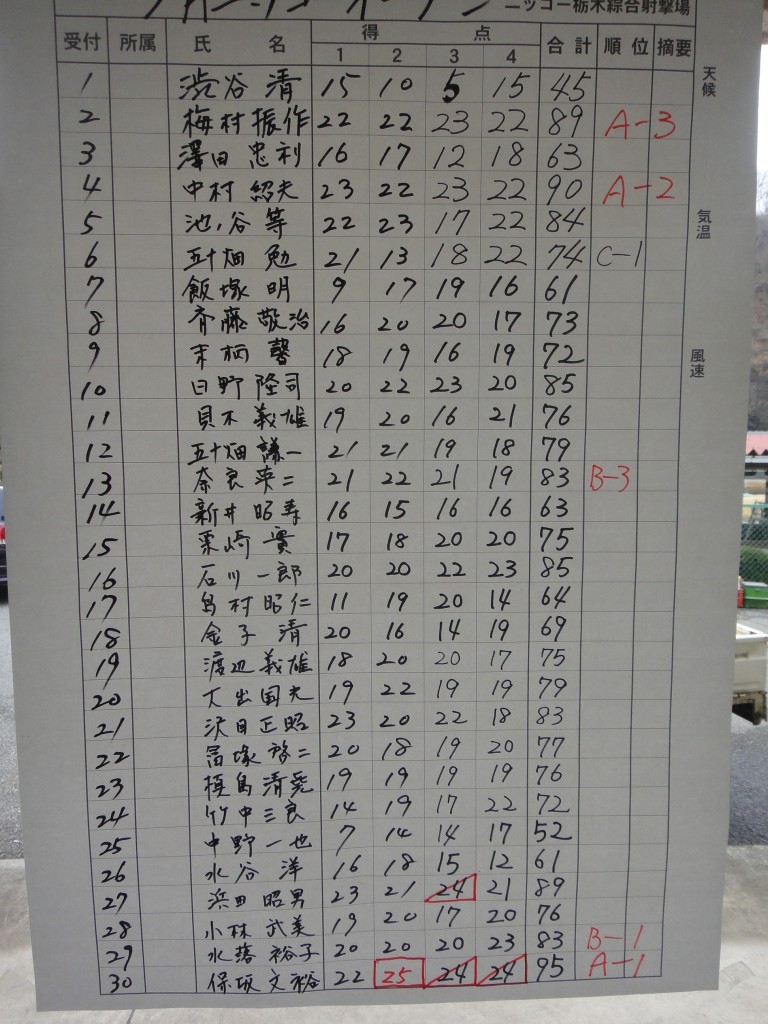 ニッコー栃木綜合射撃場
受付 所属 氏 名 得 点 合計 順位 摘要
1 2 3 4
天候
気温
風速
1 渋谷 清 15 10 5 15 45
2 梅村振作 22 22 23 22 89 A-3
3 澤田忠利 16 17 12 18 63
4 中村紹夫 23 22 23 22 90 A-2
5 池ノ谷等 22 23 17 22 84
6 五十畑 勉 21 13 18 22 74 C-1
7 飯塚 明 9 17 19 16 61
8 斉藤敬治 16 20 20 17 73
9 末柄 馨 18 19 16 19 72
10 日野隆司 20 22 23 20 85
11 貝木義雄 19 20 16 21 76
12 五十畑謙一 21 21 19 18 79
13 奈良英二 21 22 21 19 83 B-3
14 新井昭寿 16 15 16 16 63
15 栗崎 實 17 18 20 20 75
16 石川一郎 20 20 22 23 85
17 島村昭仁 11 19 20 14 64
18 金子 清 20 16 14 19 69
19 渡辺義雄 18 20 20 17 75
20 大出国夫 19 22 19 19 79
21 沢田正昭 23 20 22 18 83
22 冨塚啓二 20 18 19 20 77
23 槙島清 19 19 19 19 76
24 竹中三良 14 19 17 22 72
25 中野一也 7 14 14 17 52
26 水谷 洋 16 18 15 12 61
27 浜田昭男 23 21 24 21 89
28 小林武美 19 20 17 20 76
29 水落裕子 20 20 20 23 83 B-1
30 保坂文裕 22 25 24 24 95 A-1